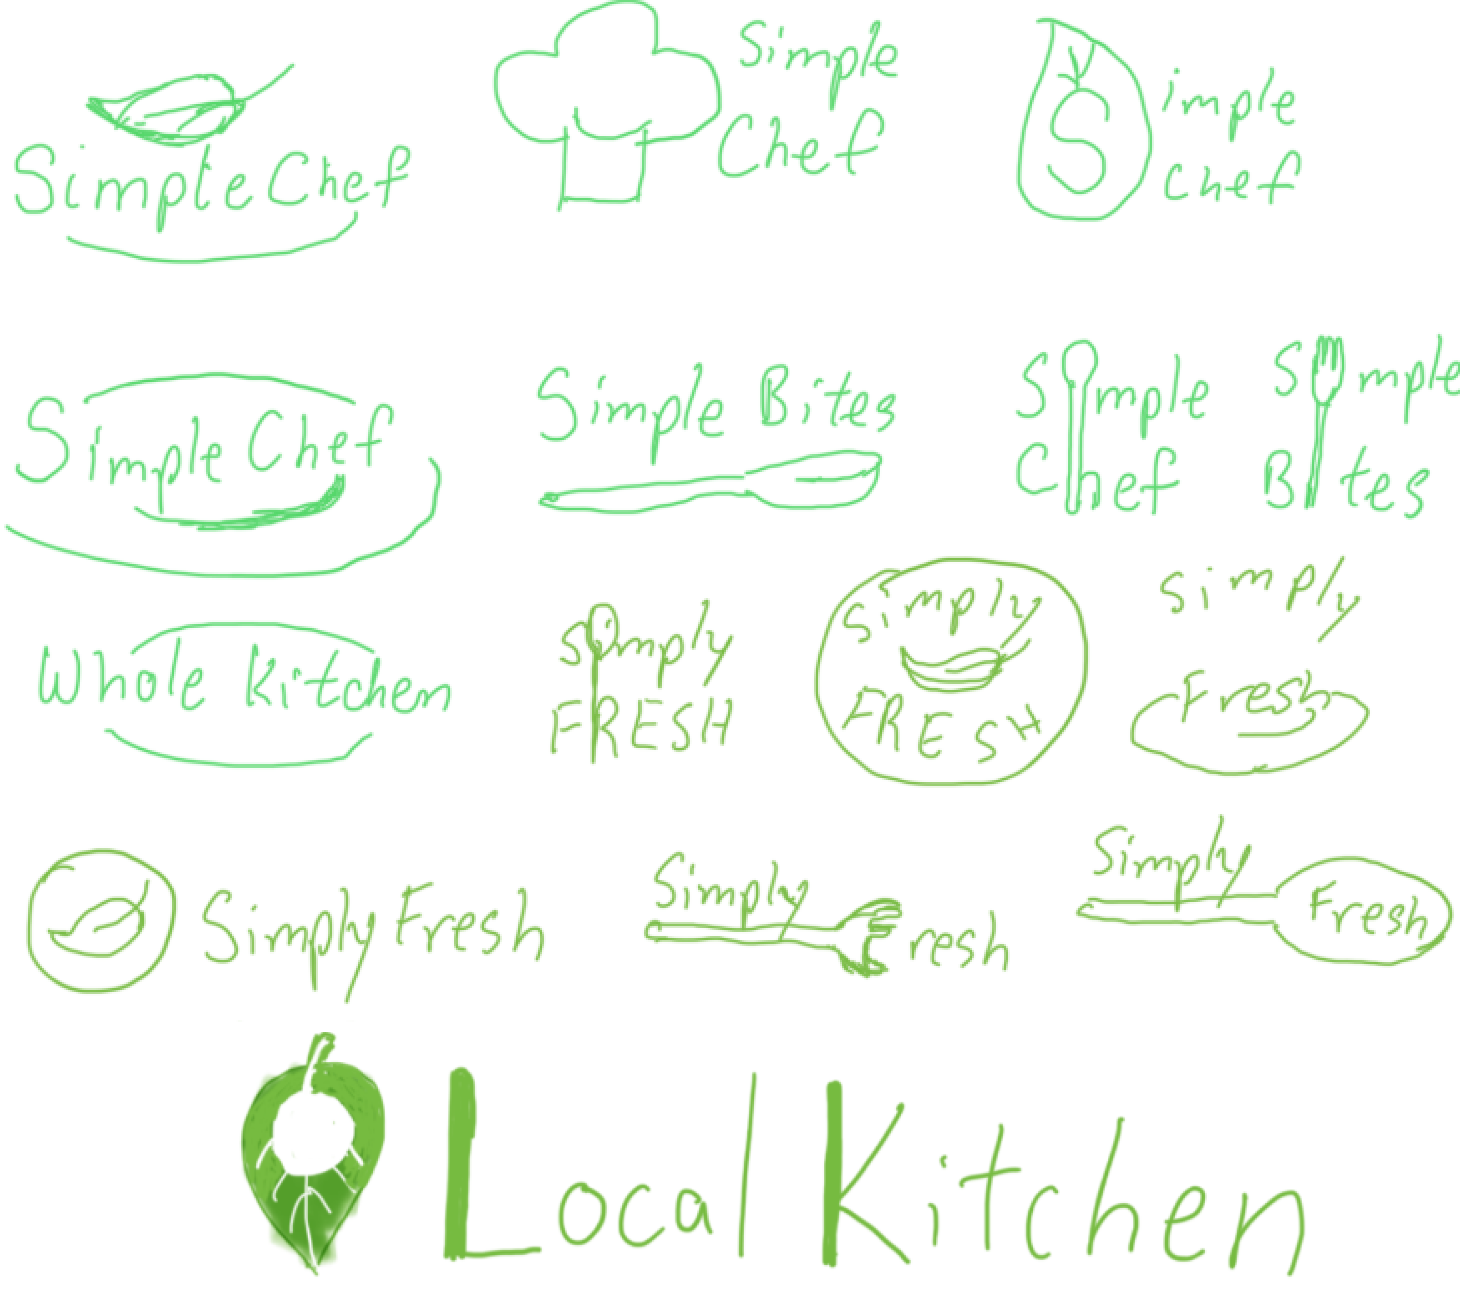 Simple Chef
Simple
Chef
Simple
chef
Simple Chef
Simple Bites
Simple
Chef
Simple
Bites
Whole Kitchen
simply
FRESH
Simply
FRESH
simply
Fresh
Simply Fresh
Simply
Fresh
Simply
Fresh
Local Kitchen